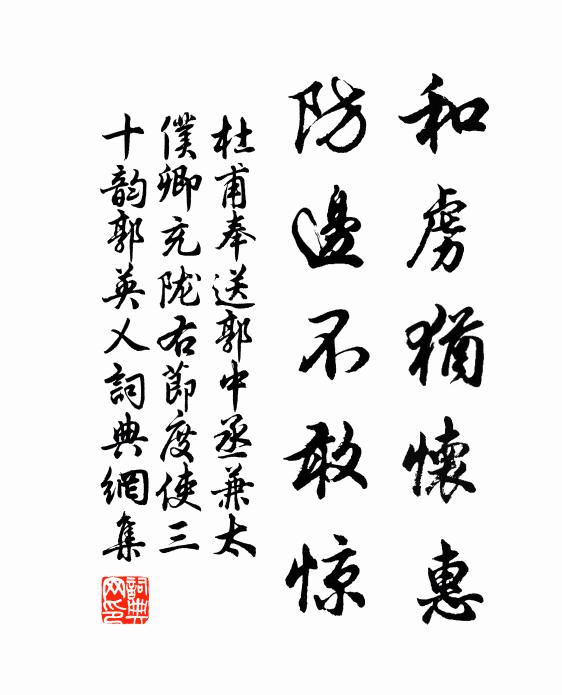 和虜猶懷惠
防邊不敢惊
杜甫奉送郭中丞兼太
僕卿充陇右節度使三
十韵郭英乂詞典網集
詞典网印